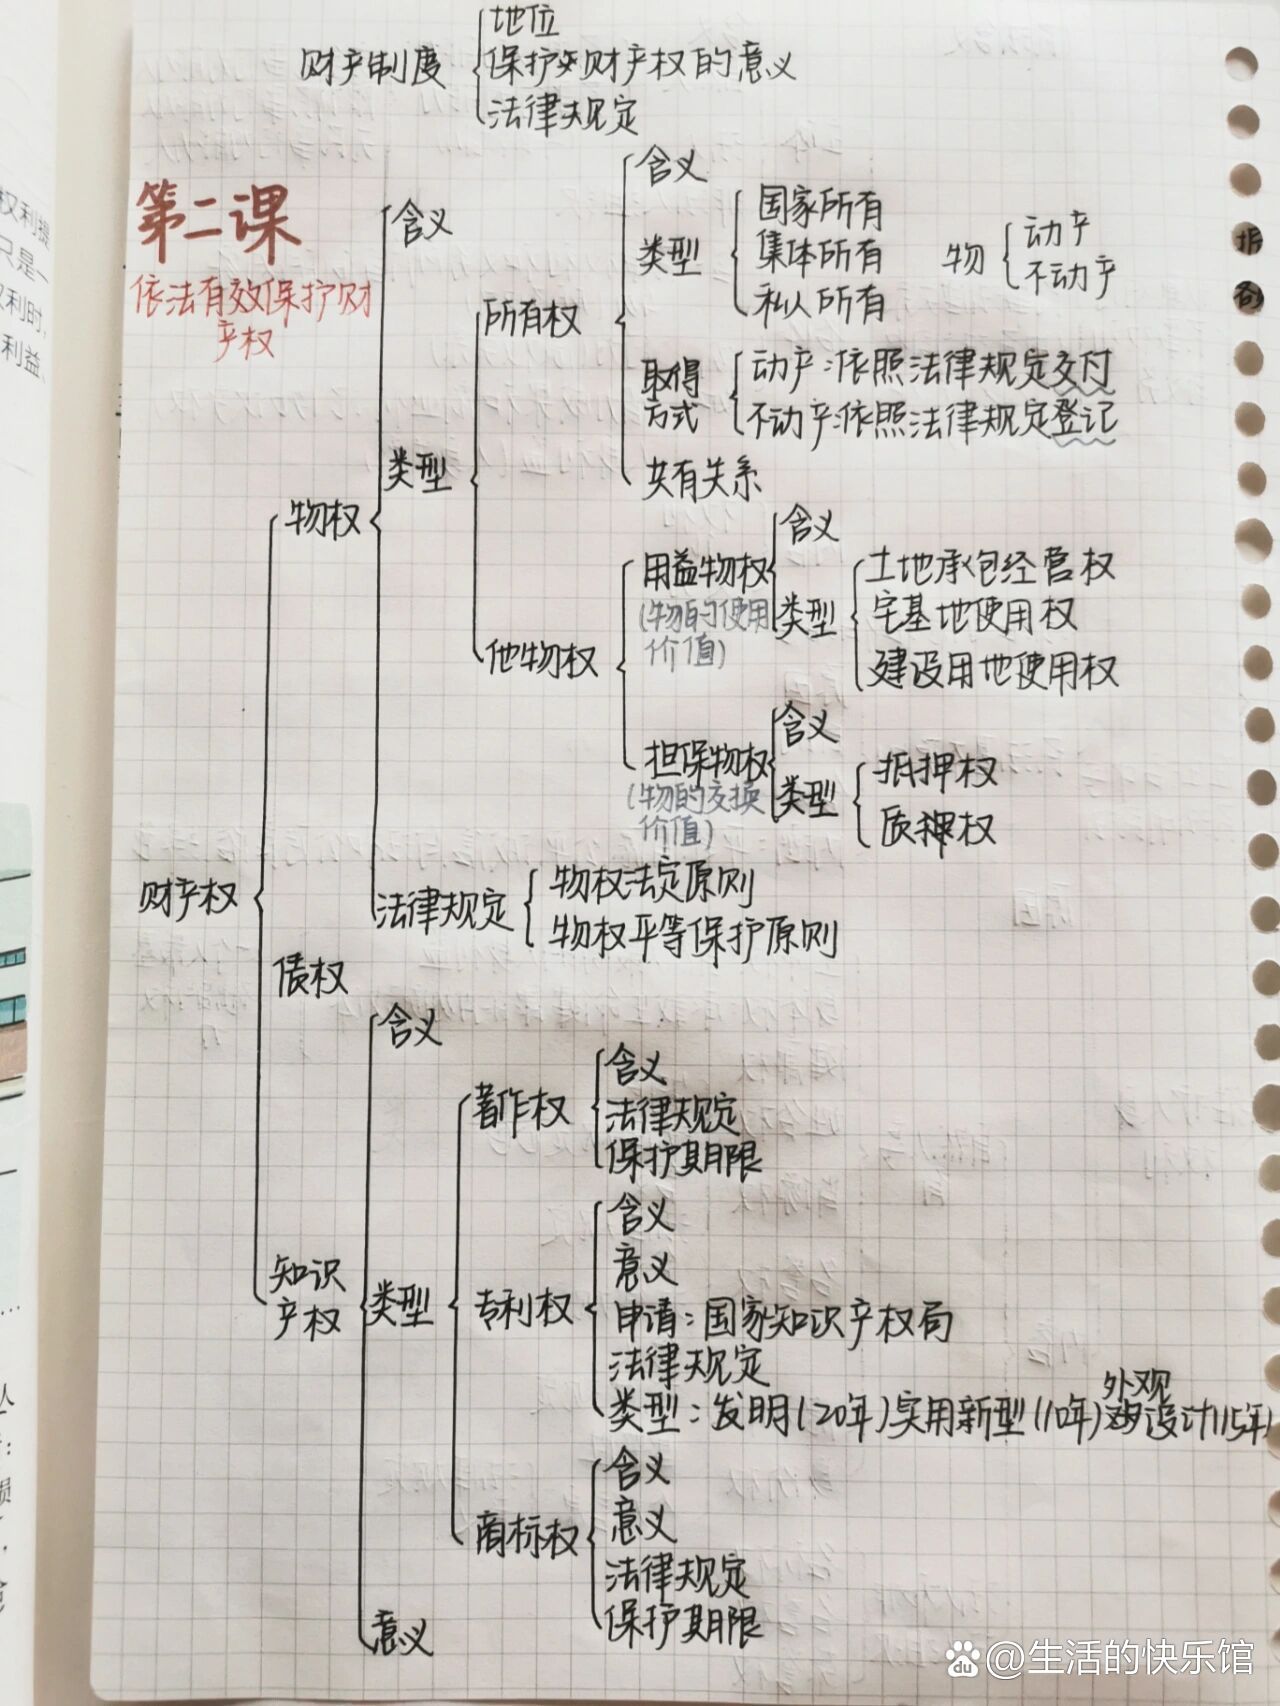 财产制度
地位
保护财产权的意义
法律规定
第二课
依法有效保护财
产权
财产权
物权
含义
类型
所有权
含义
类型
国家所有
集体所有
私人所有
物
动产
不动产
取得
方式
动产:依照法律规定交付
不动产:依照法律规定登记
共有关系
他物权
用益物权
(物的使用
价值)
含义
类型
土地承包经营权
宅基地使用权
建设用地使用权
担保物权
(物的交换
价值)
含义
类型
抵押权
质押权
法律规定
物权法定原则
物权平等保护原则
债权
知识
产权
含义
类型
著作权
含义
法律规定
保护期限
专利权
含义
意义
申请:国家知识产权局
法律规定
类型:发明(20年)实用新型(10年)外观设计(15年)
商标权
含义
意义
法律规定
保护期限
意义
权利提
只是一
权利时,
利益、
@生活的快乐馆